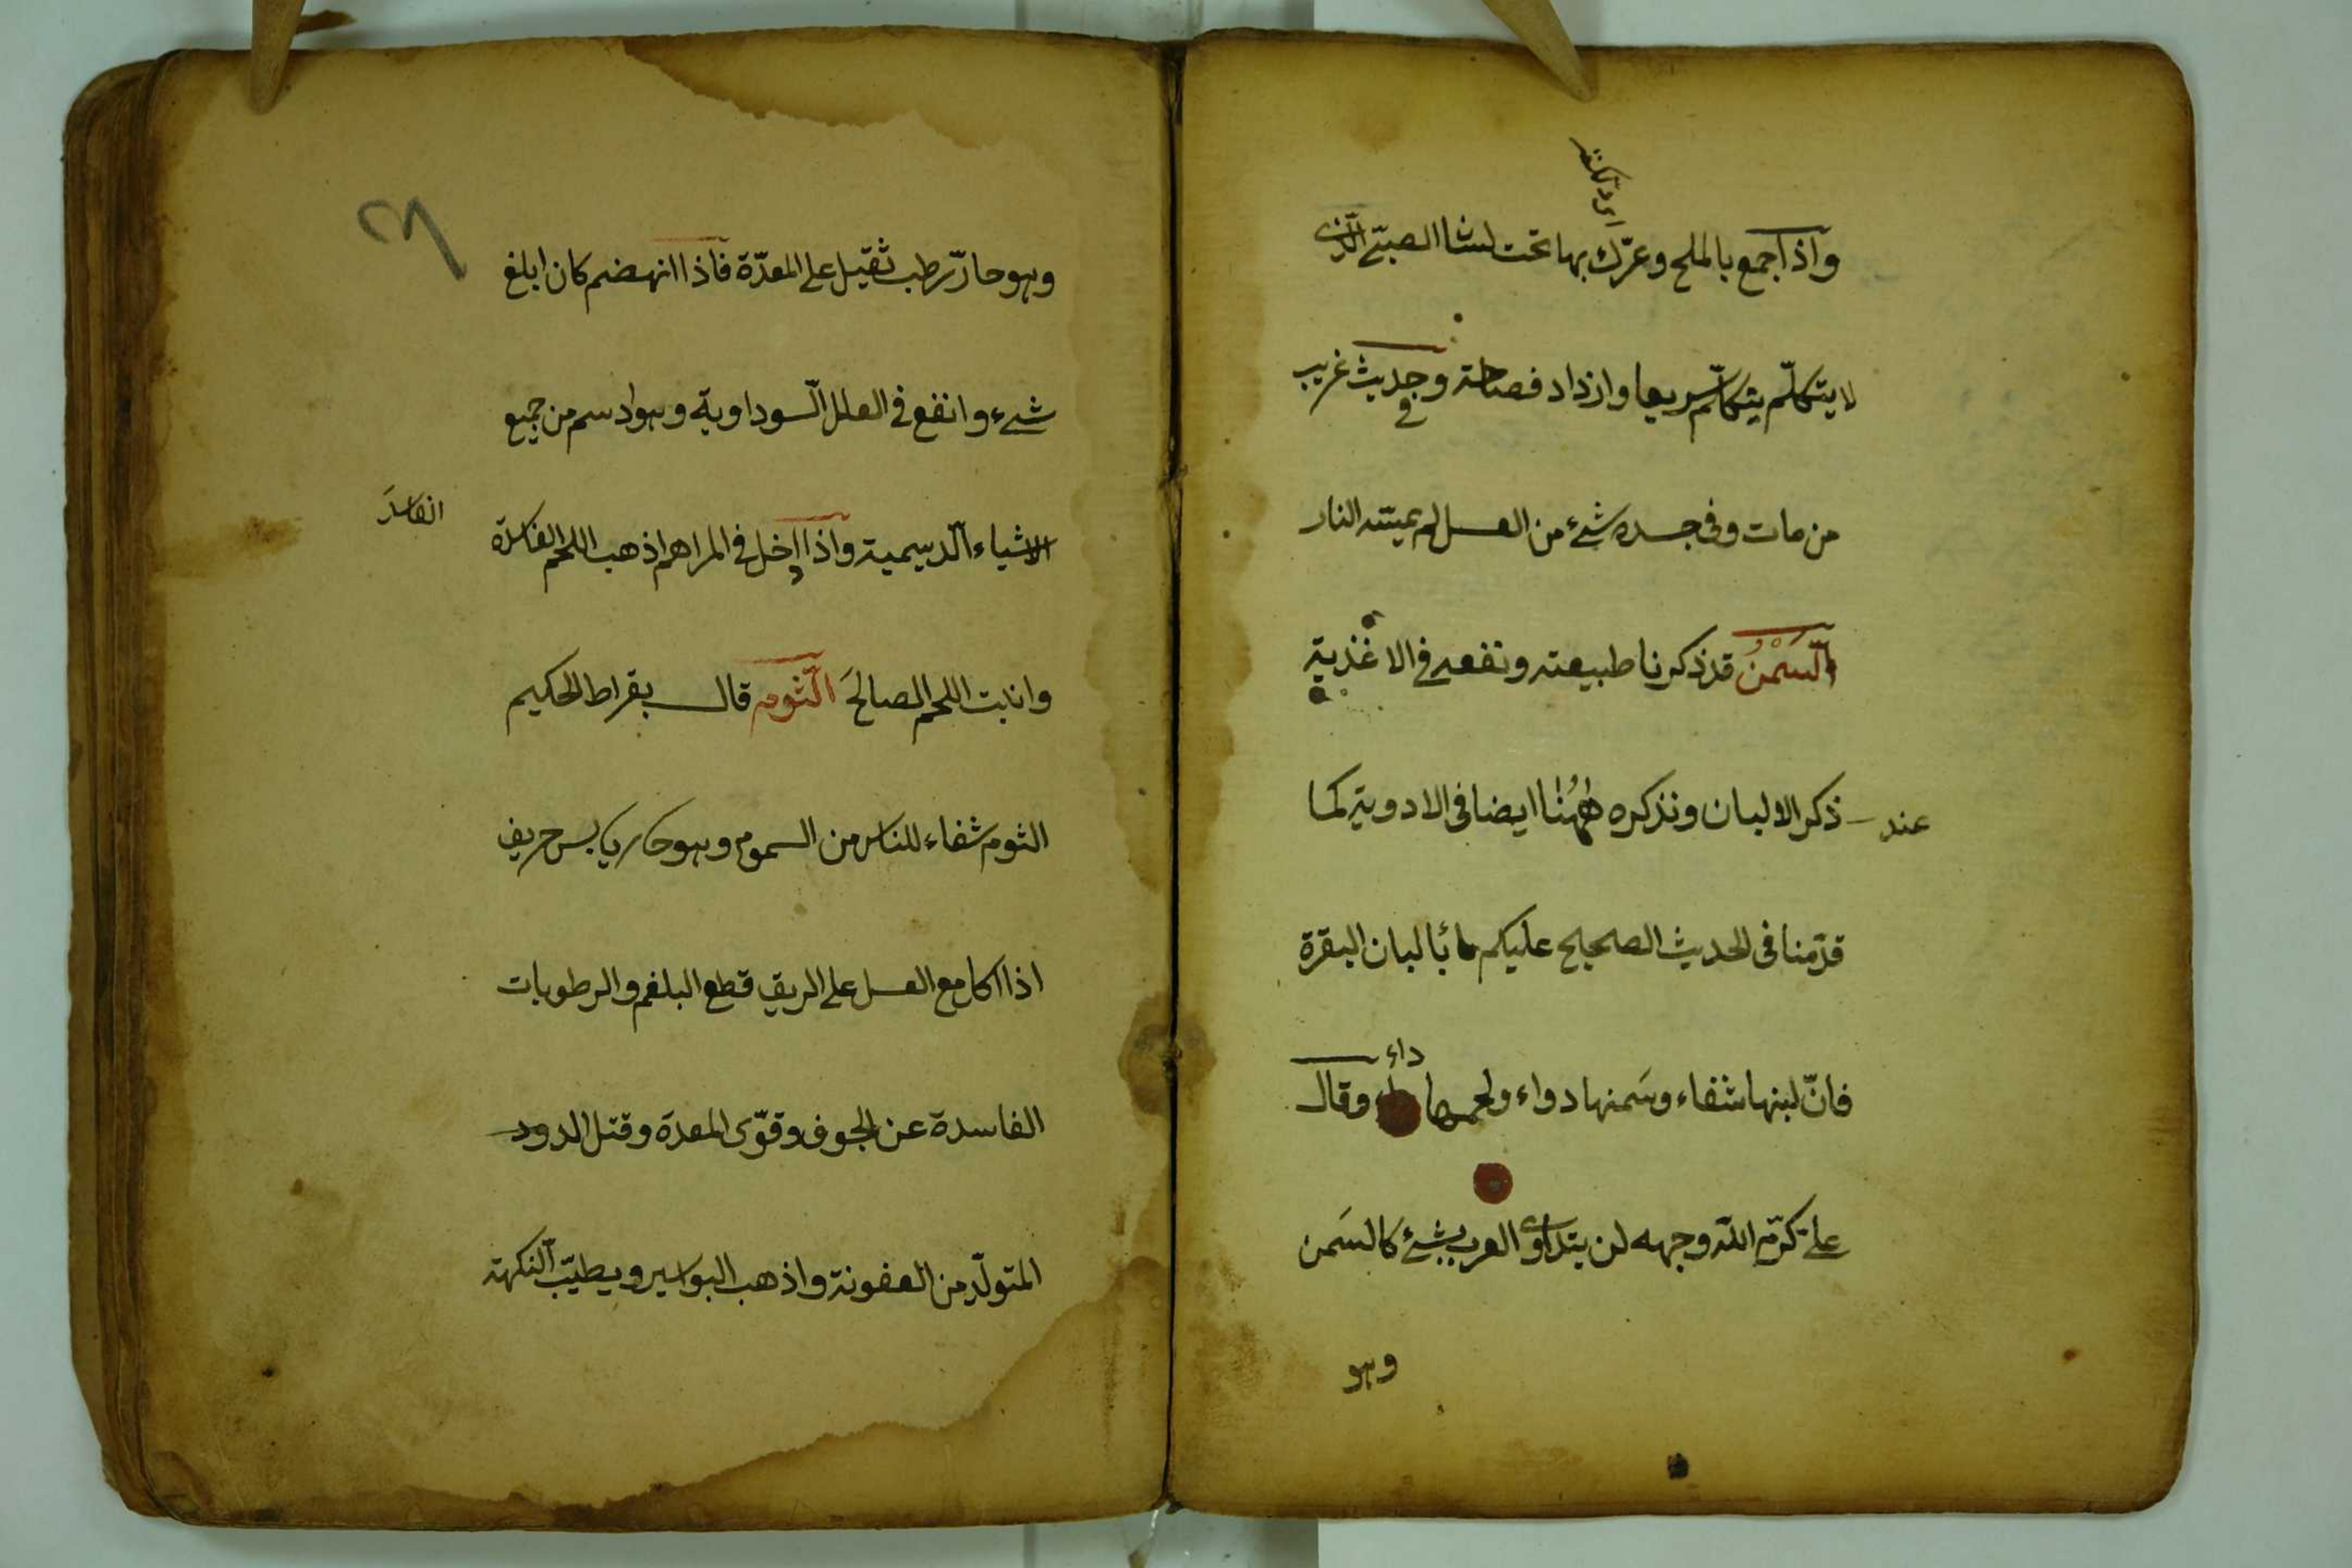 واذا جمع بالملح وعرّك بها تحت لسان الصبيّ الّذي
لا يتكلّم يتكلّم سريعا وازداد فصاحته وفي حديث غريب
من مات وفى جسده شئ من العسل لم يمسّه النار
السَّمْنُ قد ذكرنا طبيعته ونفعه في الاغذية
عند ذكر الالبان ونذكره ههُنا ايضا فى الادوية كما
قدّمنا فى الحديث الصحيح عليكم بالبان البقرة
فانّ لبنها شفاء وسَمنها دواء ولحمها داء وقال
على كرّم الله وجهه لن يتداوى العرب بشئ كالسَمن
وهو
وهو حارّ رطب ثقيل على المعدّة فاذا انهضم كان ابلغ
شىء وانفع في العلل السّوداوية وهو ادسم من جميع
الاشياء الّدسيمية واذا ادخل في المراهم اذهب اللحم الفاسدة
الفاسدَ
وانابت اللحم الصالحَ الثّوم قال بقراط الحكيم
الثوم شفاء للناس من السموم وهو حار يابس حريف
اذا اكل مع العسل على الريق قطع البلغم والرطوبات
الفاسدة عن الجوف وقوّى المعدة وقتل الدود
المتولّد من العفونة واذهب البواسير ويطيّب النكهة